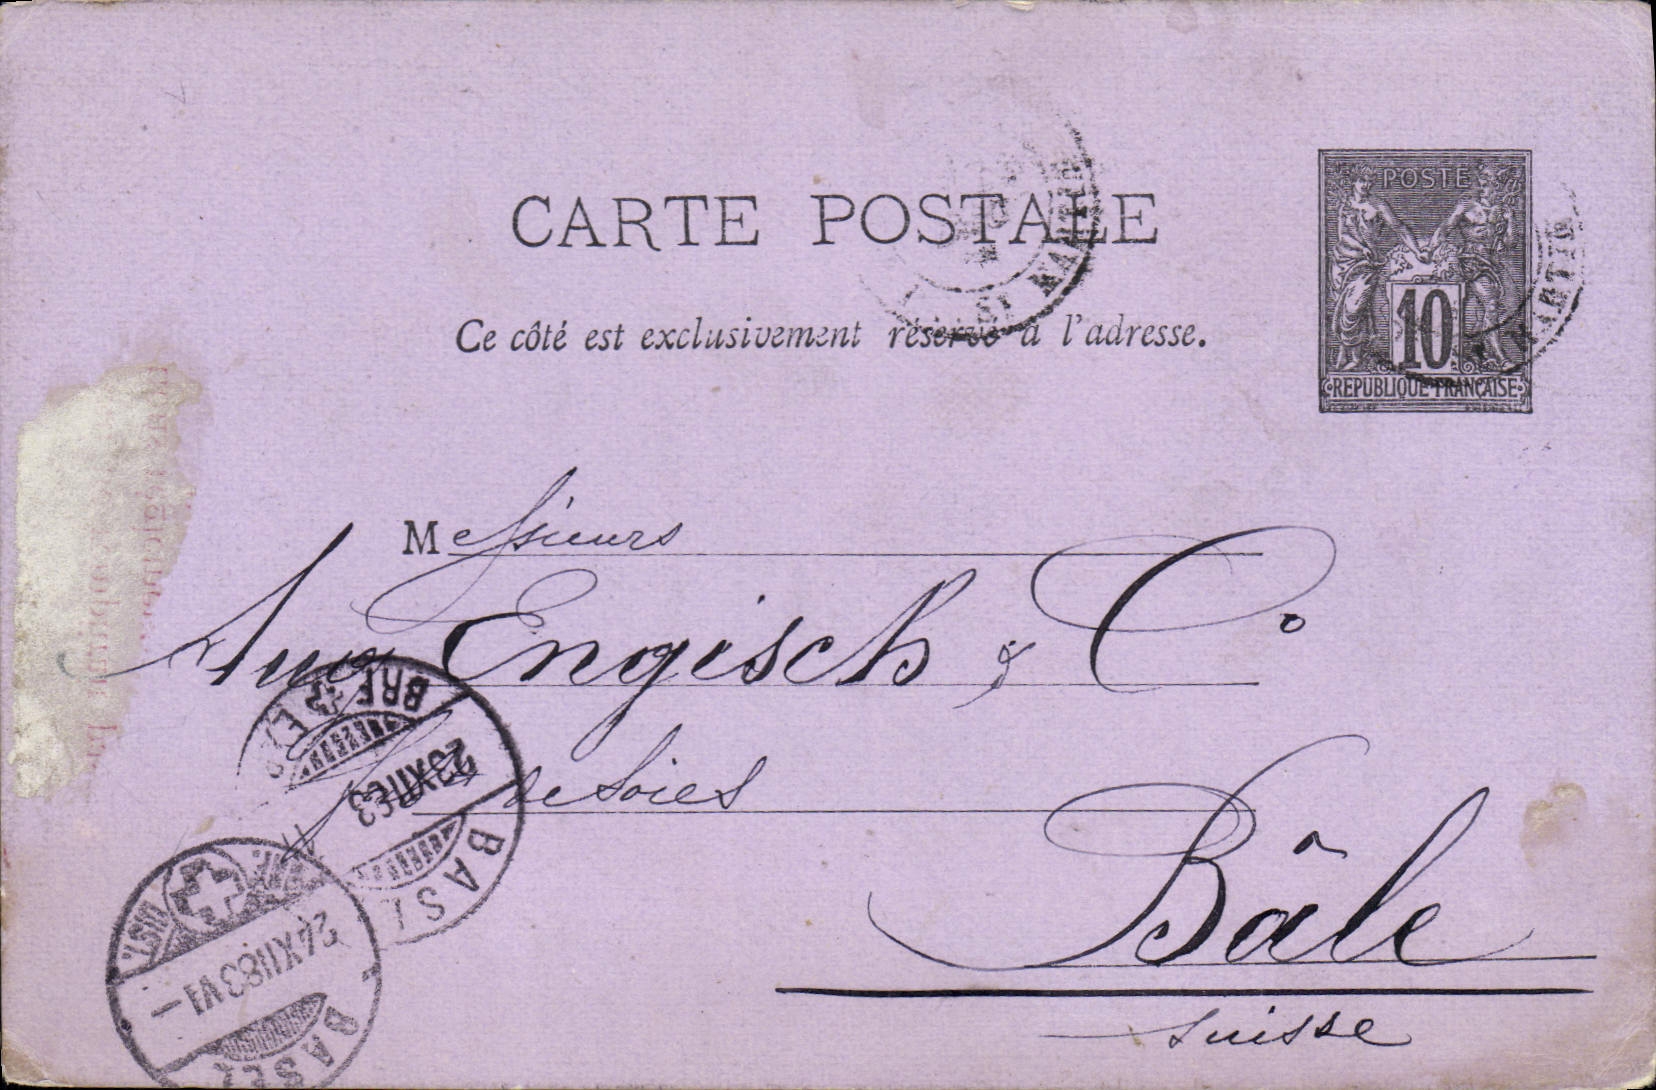 CARTE POSTALE
POSTE
10
REPUBLIQUE FRANÇAISE
ST MARTIN
MARTIN
Ce côté est exclusivement réservé à l'adresse.
Messieurs
Aug Engisch & Co
de Soies
Bâle
Suisse
BASEL
BRF
23 XII 83
BASEL
24 XII 83 VI –
BASEL